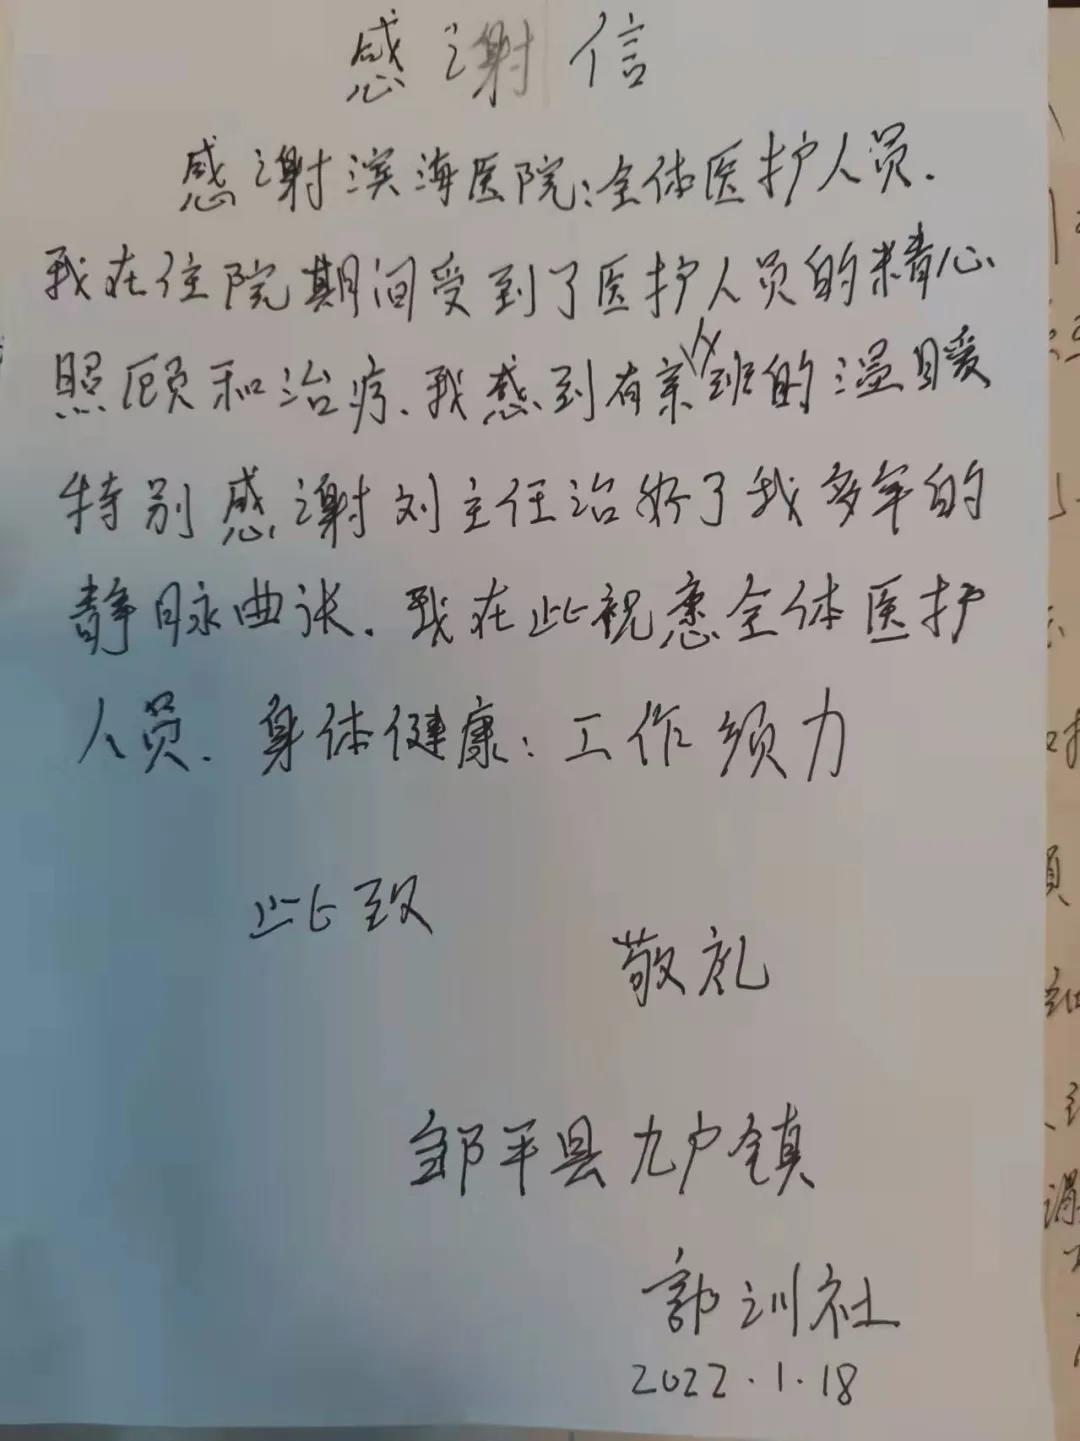 感谢信
感谢滨海医院:全体医护人员.
我在住院期间受到了医护人员的精心
照顾和治疗.我感到有亲人班的温暖
特别感谢刘主任治好了我多年的
静脉曲张.我在此祝愿全体医护
人员.身体健康:工作须力
此致
敬礼
邹平县九户镇
郭训社
2022.1.18